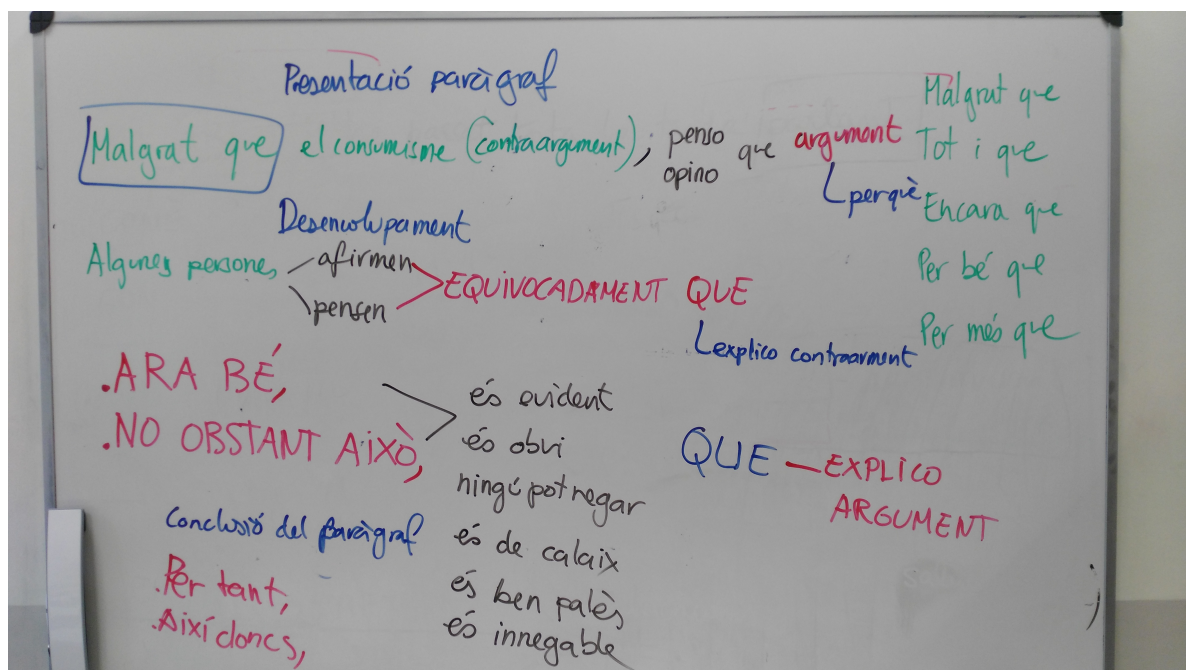 Presentació paràgraf
Malgrat que el consumisme (contraargument), penso que argument
opino
perquè
Malgrat que
Tot i que
Encara que
Per bé que
Per més que
Desenvolupament
Algunes persones afirmen EQUIVOCADAMENT QUE
pensen
explico contraarment
.ARA BÉ,
.NO OBSTANT AIXÒ,
és evident
és obvi
ningú pot negar
és de calaix
és ben palès
és innegable
QUE — EXPLICO
ARGUMENT
Conclusió del paràgraf
.Per tant,
.Així doncs,